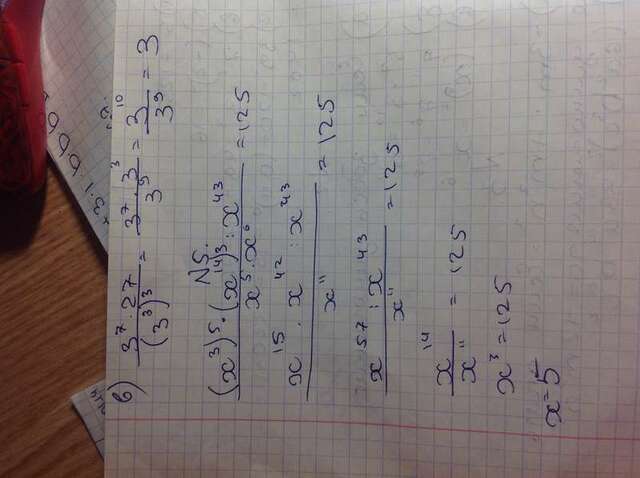 в) 3⁷ · 27 / (3³)³ = 3⁷ · 3³ / 3⁹ = 3¹⁰ / 3⁹ = 3
N5.
(x³)⁵ · (x¹⁴)³ : x⁴³ / x⁵ · x⁶ = 125
x¹⁵ · x⁴² : x⁴³ / x¹¹ = 125
x⁵⁷ : x⁴³ / x¹¹ = 125
x¹⁴ / x¹¹ = 125
x³ = 125
x = 5